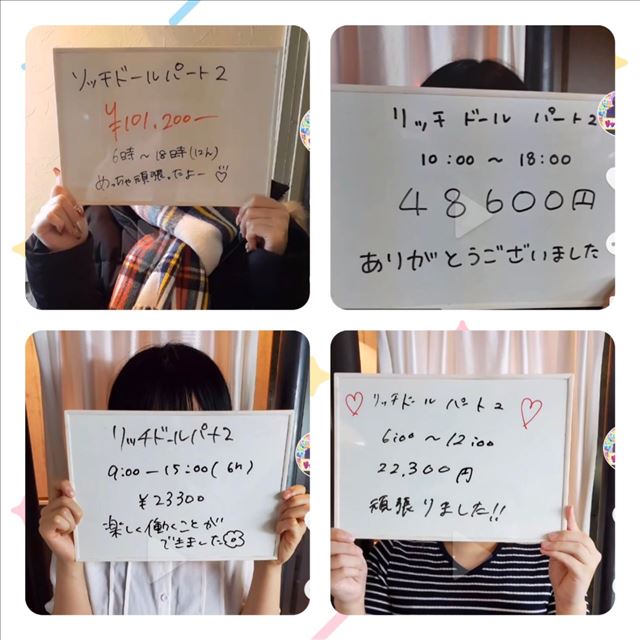 ソッチドールパート2
¥101,200-
6時～18時(12h)
めっちゃ頑張ったよー
リッチドール パート2
10:00～18:00
48600円
ありがとうございました
リッチドールパート2
9:00-15:00(6h)
¥23300
楽しく働くことが
できました
リッチドール パート2
6:00～12:00
22,300円
頑張りました!!